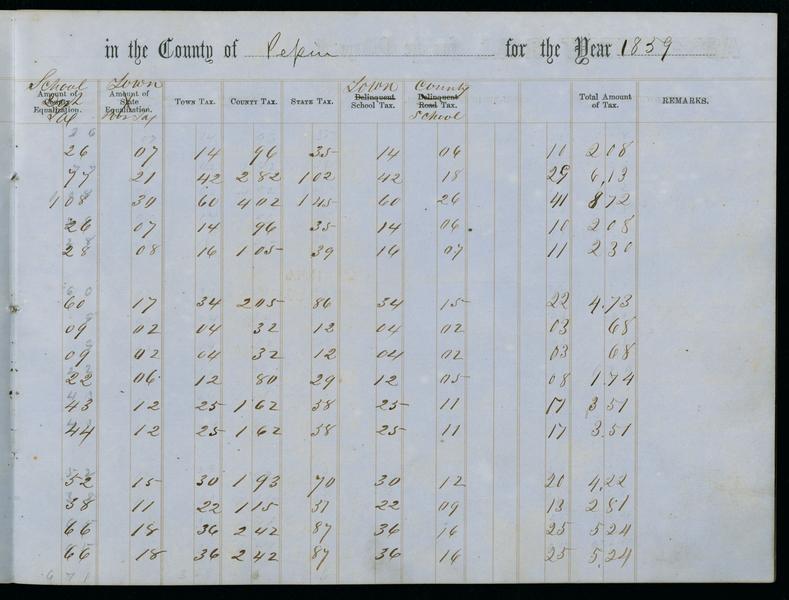 in the County of Pepin for the Year 1859
School Town Town County
Amount of Amount of State Equalization. Town Tax. County Tax. State Tax. Delinquent School Tax. Delinquent Road Tax. Total Amount of Tax. REMARKS.
Equalization.
Tax Poor Tax School
26 07 14 96 35 14 06 10 2 08
77 21 42 2 82 1 02 42 18 29 6,13
1 08 30 60 4 02 1 45 60 26 41 8 72
26 07 14 96 35 14 06 10 2 08
28 08 16 1 05 39 16 07 11 2 30
60 17 34 2 05 86 34 15 22 4,73
09 02 04 32 12 04 02 03 68
09 02 04 32 12 04 02 03 68
22 06 12 80 29 12 05 08 1 74
43 12 25 1 62 58 25 11 17 3 51
44 12 25 1 62 58 25 11 17 3.51
52 15 30 1 93 70 30 12 20 4,22
38 11 22 1 15 37 22 09 13 2 51
66 18 36 2 42 87 36 16 25 5 24
66 18 36 2 42 87 36 16 25 5,24